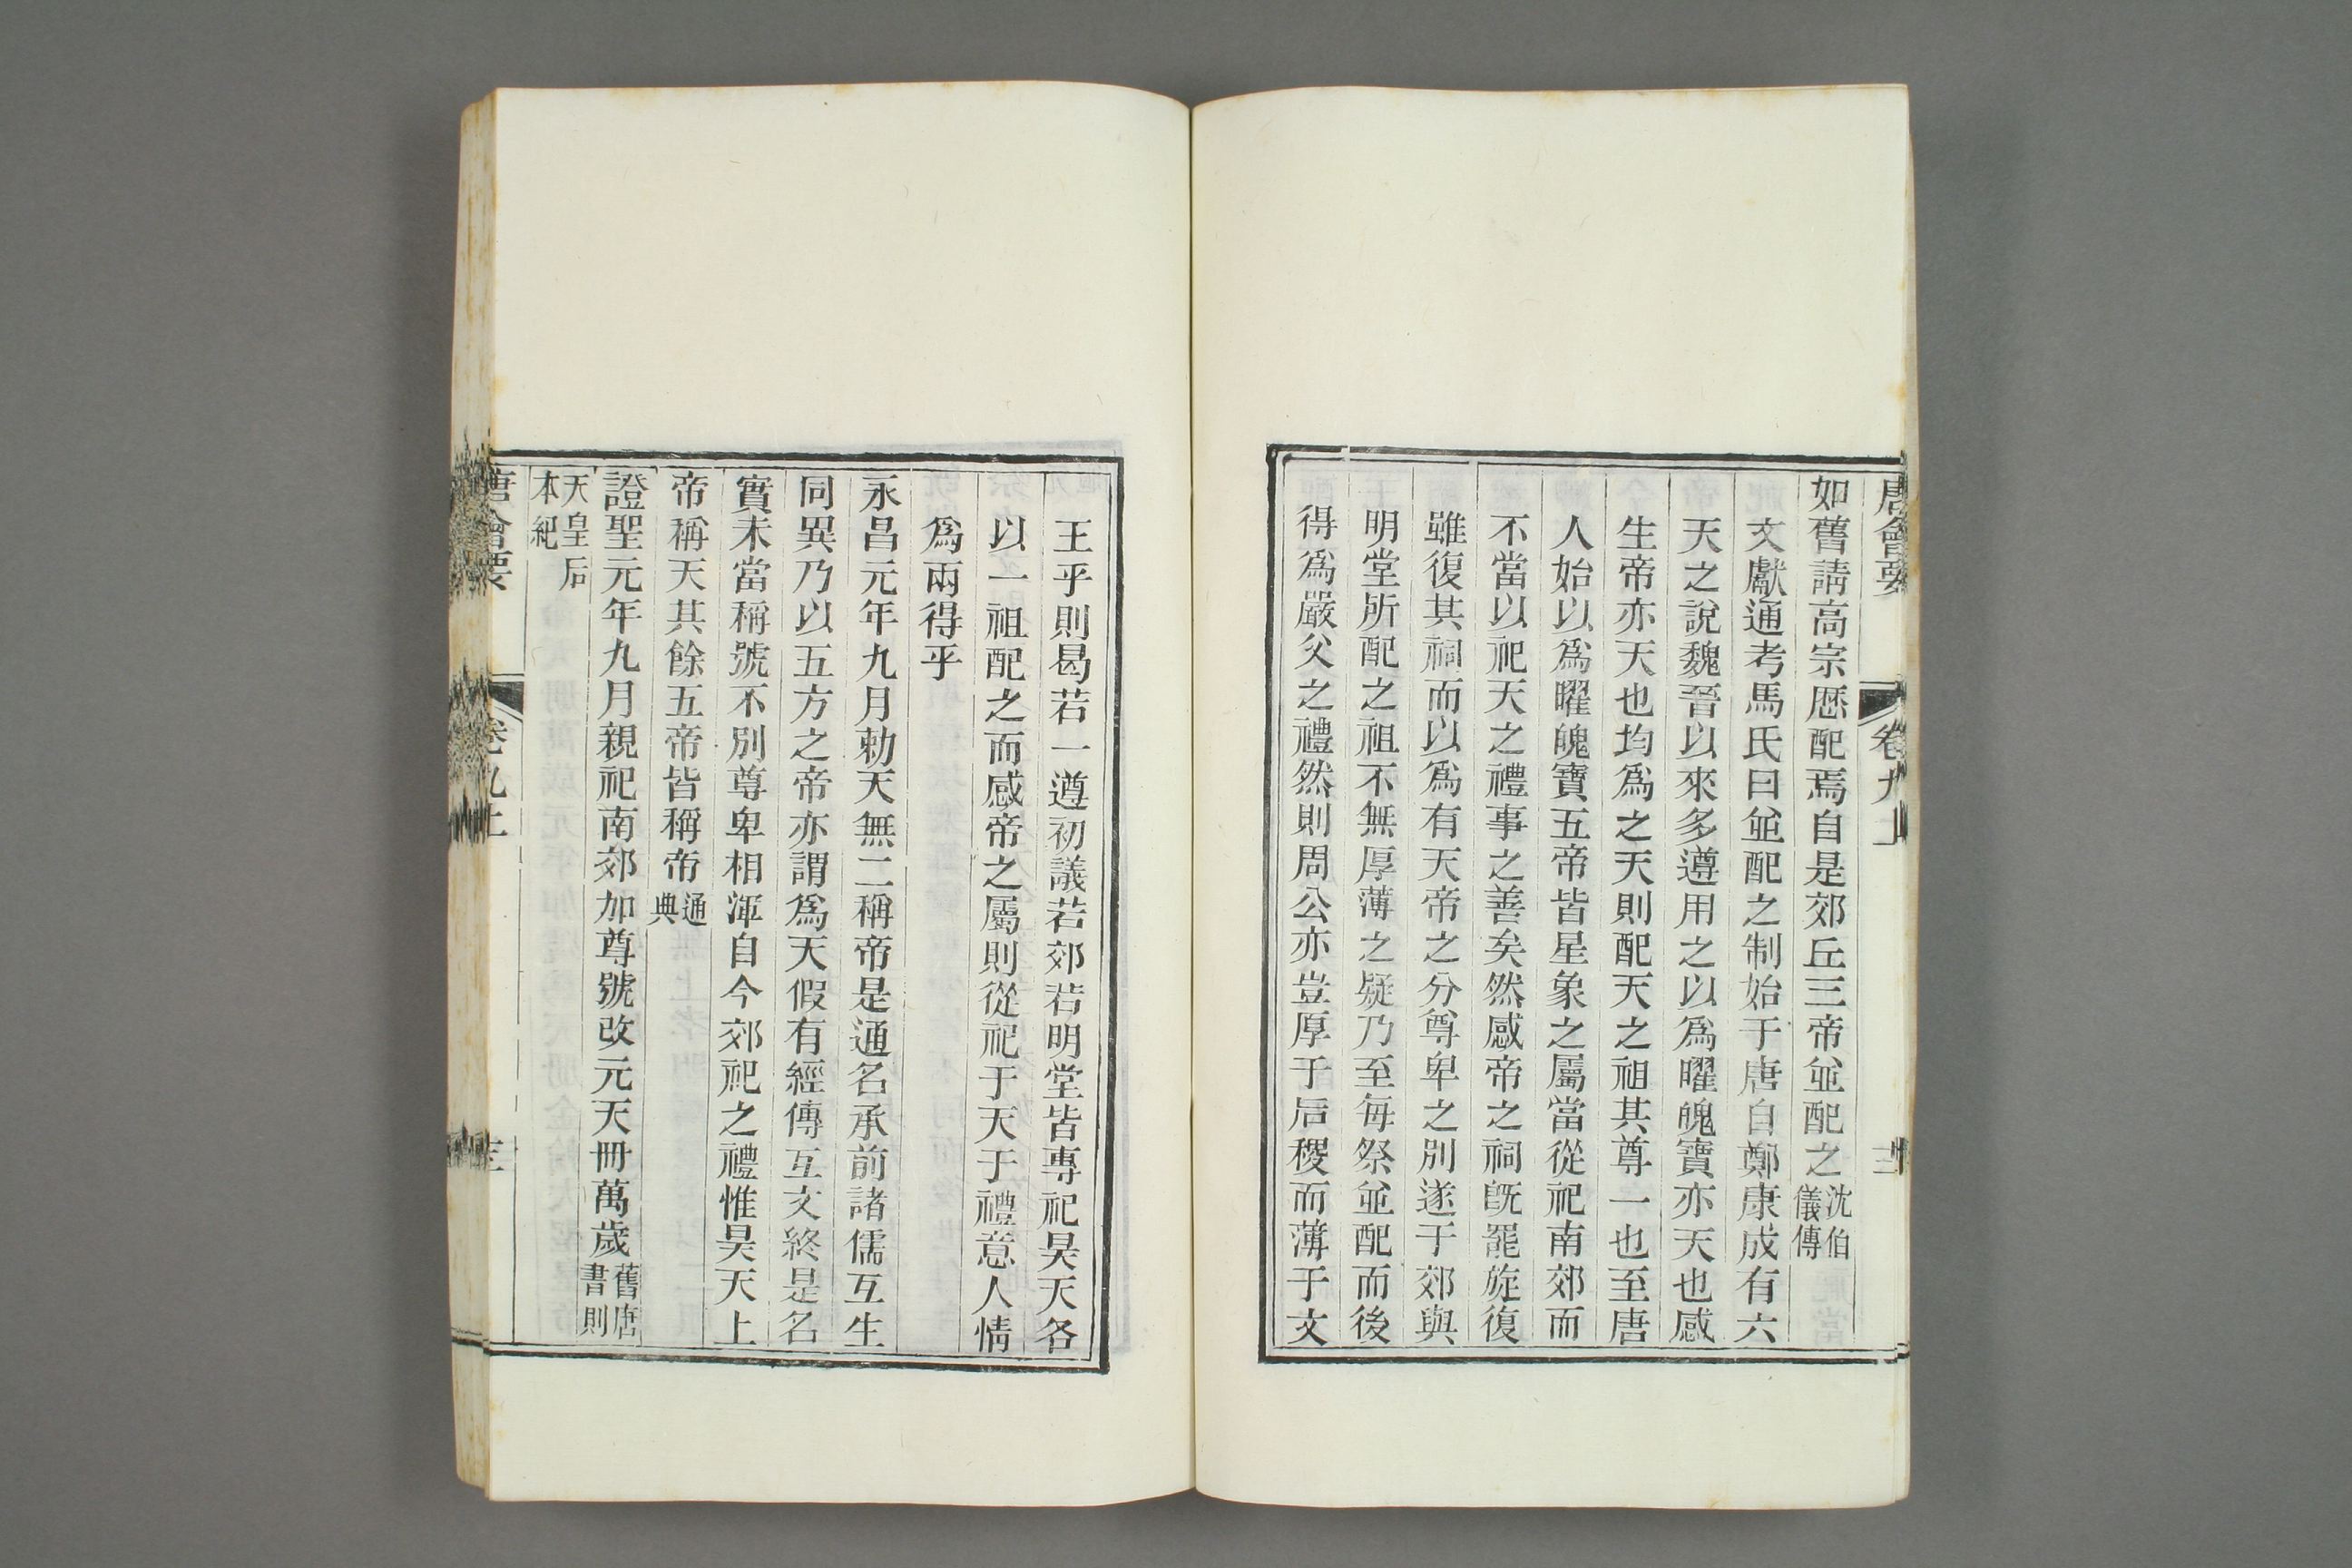 唐會要 卷九上
如舊請高宗歷配焉自是郊丘三帝並配之沈伯儀傳
文獻通考馬氏曰並配之制始于唐自鄭康成有六
天之說魏晉以來多遵用之以爲曜魄寶亦天也感
生帝亦天也均爲之天則配天之祖其尊一也至唐
人始以爲曜魄寶五帝皆星象之屬當從祀南郊而
不當以祀天之禮事之善矣然感帝之祠旣罷旋復
雖復其祠而以爲有天帝之分尊卑之別遂于郊與
明堂所配之祖不無厚薄之疑乃至每祭並配而後
得爲嚴父之禮然則周公亦豈厚于后稷而薄于文
王乎則曷若一遵初議若郊若明堂皆專祀昊天各
以一祖配之而感帝之屬則從祀于天于禮意人情
爲兩得乎
永昌元年九月勅天無二稱帝是通名承前諸儒互生
同異乃以五方之帝亦謂爲天假有經傳互文終是名
實未當稱號不別尊卑相渾自今郊祀之禮惟昊天上
帝稱天其餘五帝皆稱帝通典
證聖元年九月親祀南郊加尊號改元天冊萬歲舊唐書則
天皇后本紀
唐會要 卷九上